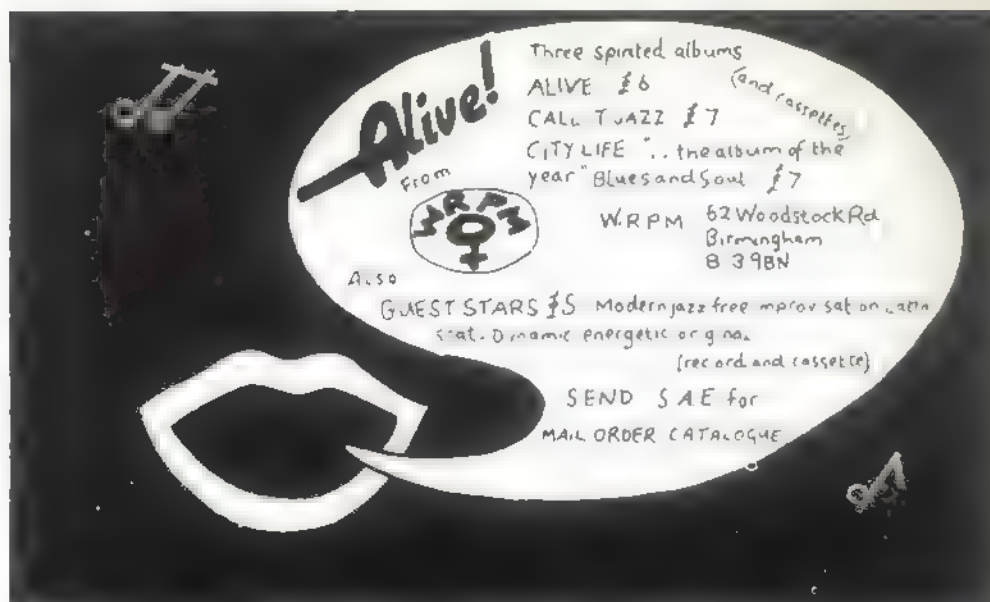 Alive!
Three spirited albums
(and cassettes)
ALIVE £6
CALL T JAZZ £7
CITY LIFE ".. the album of the
year" Blues and Soul £7
From
WRPM
W.R.P.M 62 Woodstock Rd
Birmingham
B 3 9BN
Also
GUEST STARS £5 Modern jazz free improvisation Latin
scat. Dynamic energetic original
(record and cassette)
SEND S A E for
MAIL ORDER CATALOGUE